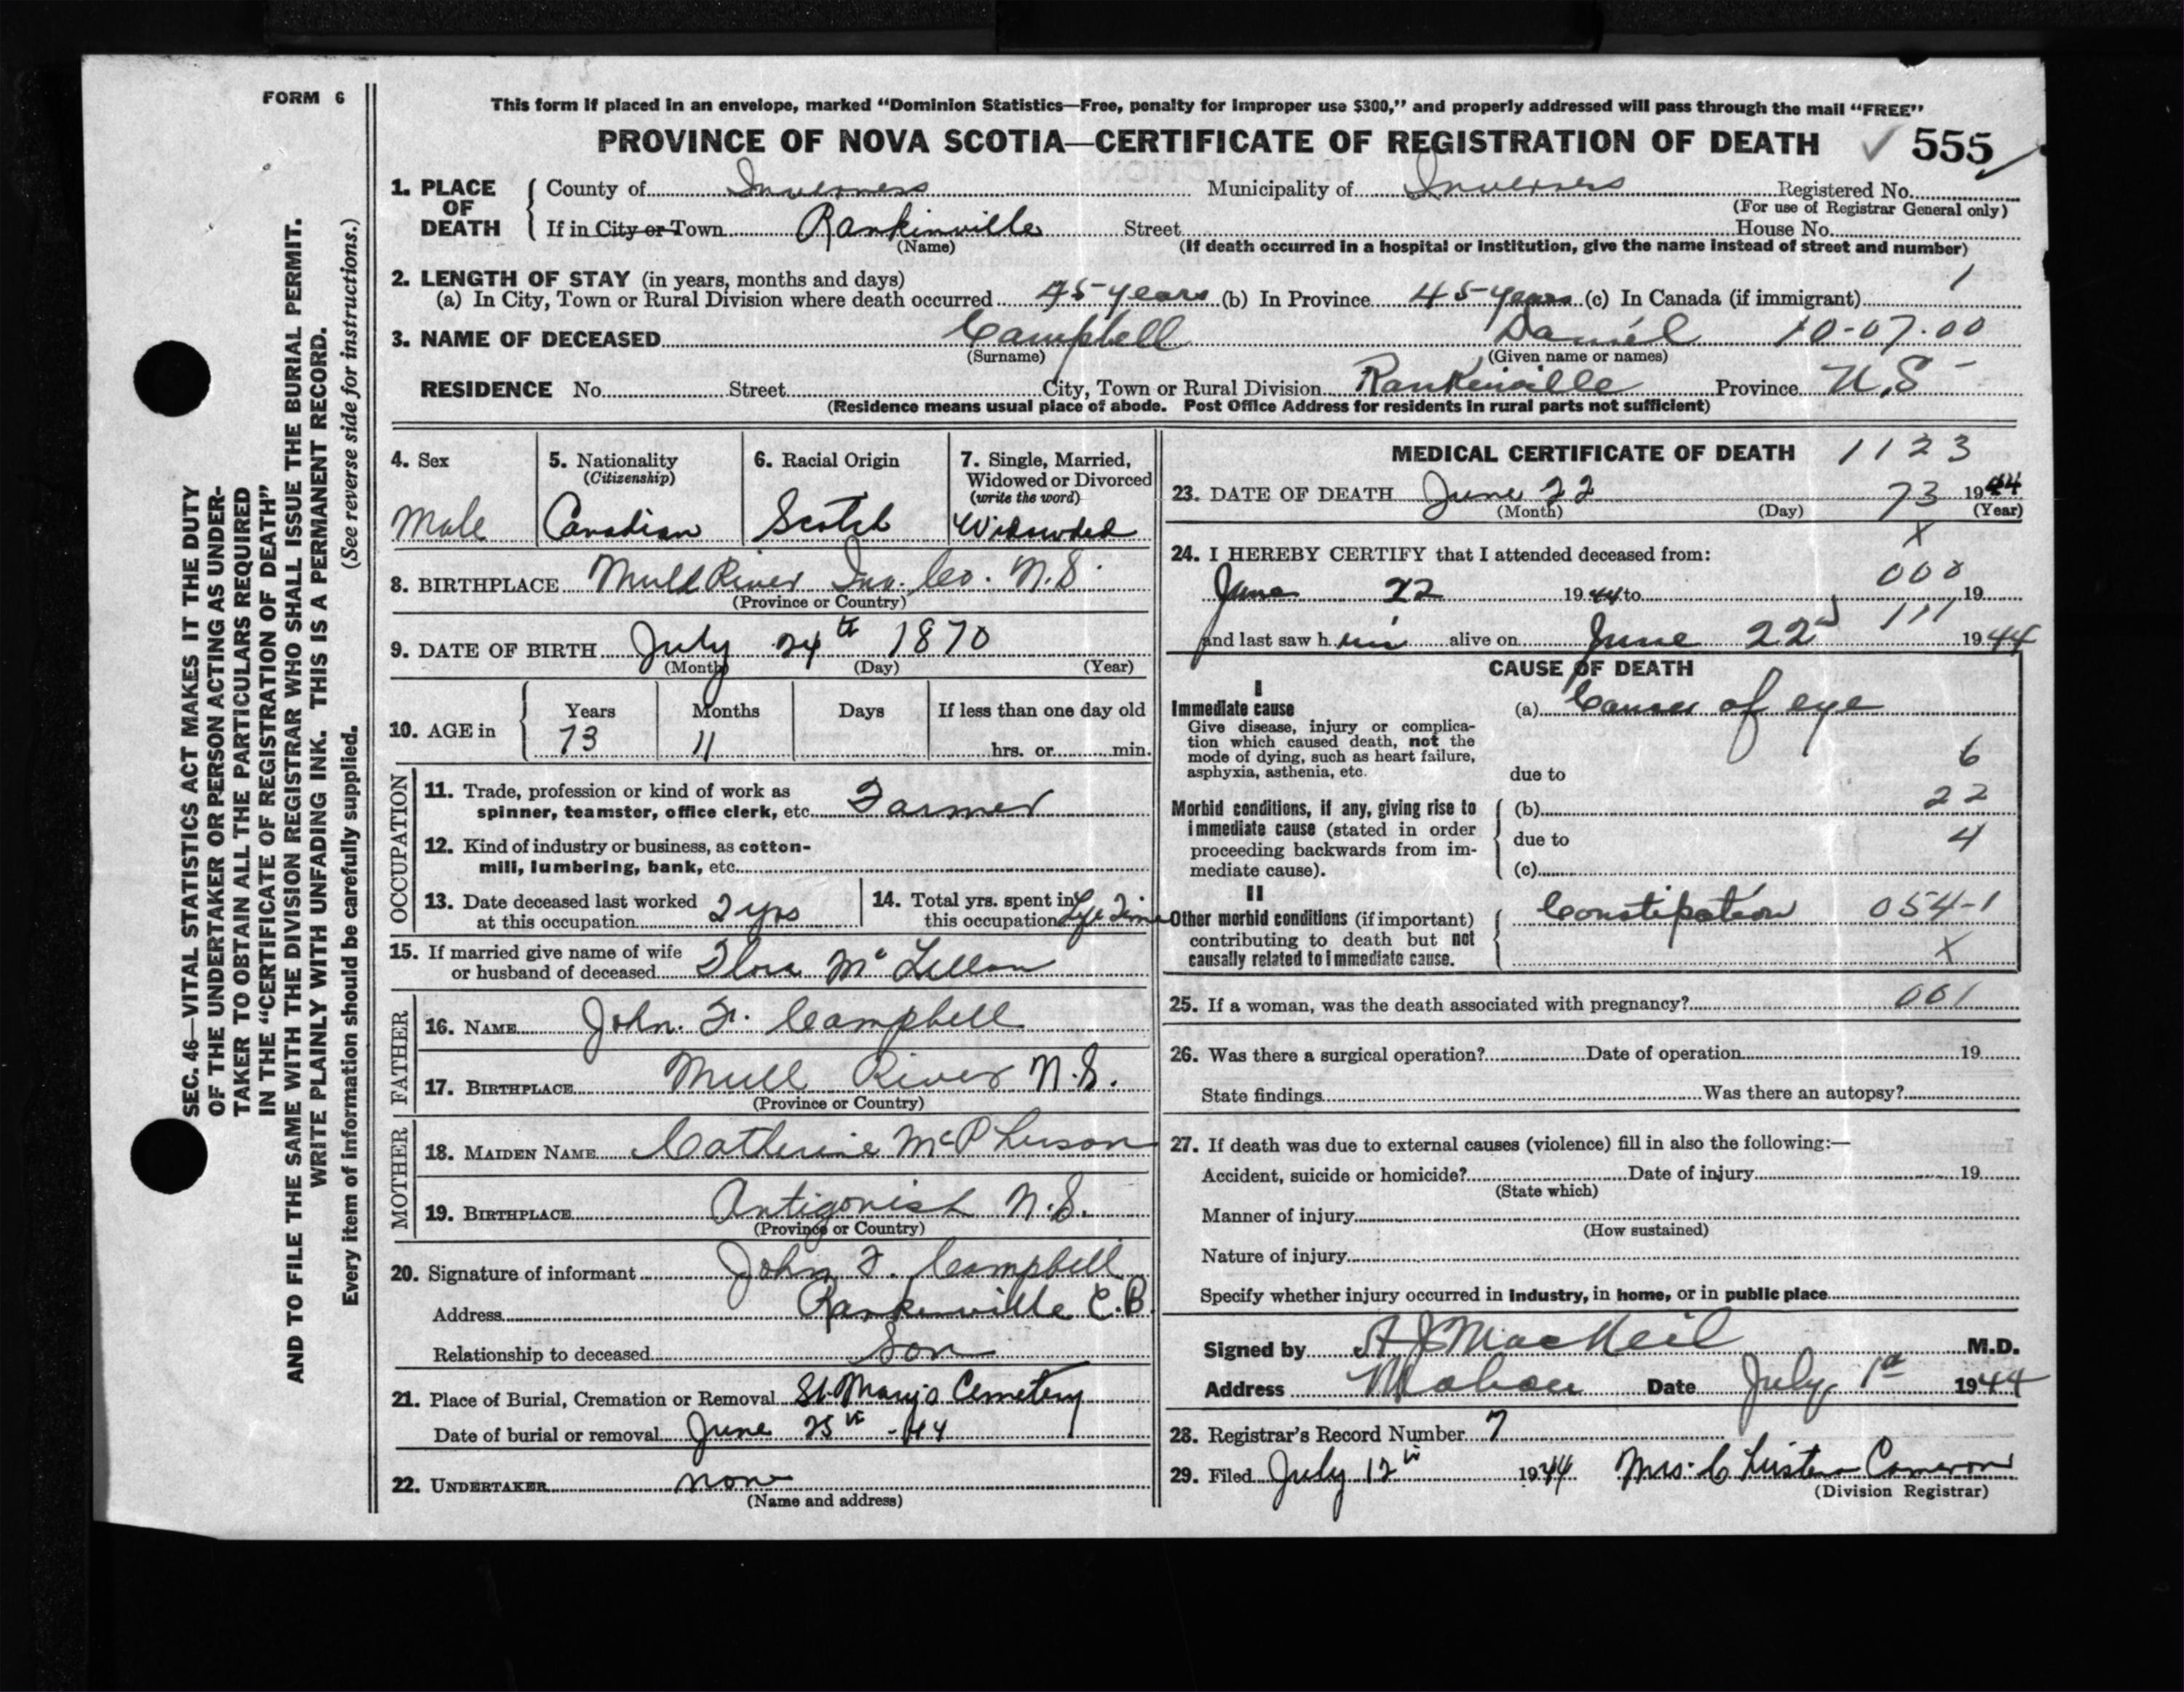 FORM 6
SEC. 46—VITAL STATISTICS ACT MAKES IT THE DUTY
OF THE UNDERTAKER OR PERSON ACTING AS UNDER-
TAKER TO OBTAIN ALL THE PARTICULARS REQUIRED
IN THE "CERTIFICATE OF REGISTRATION OF DEATH"
AND TO FILE THE SAME WITH THE DIVISION REGISTRAR WHO SHALL ISSUE THE BURIAL PERMIT.
WRITE PLAINLY WITH UNFADING INK. THIS IS A PERMANENT RECORD.
Every item of information should be carefully supplied. (See reverse side for instructions.)
This form if placed in an envelope, marked "Dominion Statistics—Free, penalty for improper use $300," and properly addressed will pass through the mail "FREE"
PROVINCE OF NOVA SCOTIA—CERTIFICATE OF REGISTRATION OF DEATH ✓ 555
1. PLACE OF DEATH County of Inverness Municipality of Inverness Registered No.
(For use of Registrar General only)
If in City or Town Rankinville Street House No.
(Name) (If death occurred in a hospital or institution, give the name instead of street and number)
2. LENGTH OF STAY (in years, months and days) 1
(a) In City, Town or Rural Division where death occurred 45 years (b) In Province 45 years (c) In Canada (if immigrant)
3. NAME OF DECEASED Campbell Daniel 10-07-00
(Surname) (Given name or names)
RESIDENCE No. Street City, Town or Rural Division Rankinville Province N.S
(Residence means usual place of abode. Post Office Address for residents in rural parts not sufficient)
4. Sex
Male
5. Nationality
(Citizenship)
Canadian
6. Racial Origin
Scotch
7. Single, Married,
Widowed or Divorced
(write the word)
Widowded
8. BIRTHPLACE Mull River Inv. Co. N.S.
(Province or Country)
9. DATE OF BIRTH July 24th 1870
(Month) (Day) (Year)
10. AGE in Years Months Days If less than one day old
73 11 hrs. or min.
OCCUPATION
11. Trade, profession or kind of work as
spinner, teamster, office clerk, etc. Farmer
12. Kind of industry or business, as cotton-
mill, lumbering, bank, etc.
13. Date deceased last worked
at this occupation 2 yrs
14. Total yrs. spent in
this occupation Life Time
15. If married give name of wife
or husband of deceased Flora McLellan
FATHER
16. NAME John. F. Campbell
17. BIRTHPLACE Mull River N.S.
(Province or Country)
MOTHER
18. MAIDEN NAME Catherine McPherson
19. BIRTHPLACE Antigonish N.S.
(Province or Country)
20. Signature of informant John F. Campbell
Address Rankinville C.B
Relationship to deceased Son
21. Place of Burial, Cremation or Removal St. Mary's Cemetery
Date of burial or removal June 25th - 44
22. UNDERTAKER none
(Name and address)
MEDICAL CERTIFICATE OF DEATH 1123
23. DATE OF DEATH June 22 73 1944
(Month) (Day) (Year)
X
24. I HEREBY CERTIFY that I attended deceased from:
000
June 22 1944 to 19
111
and last saw h im alive on June 22nd 1944
CAUSE OF DEATH
I
Immediate cause
Give disease, injury or complica-
tion which caused death, not the
mode of dying, such as heart failure,
asphyxia, asthenia, etc.
(a) Cancer of eye
6
due to
Morbid conditions, if any, giving rise to
immediate cause (stated in order
proceeding backwards from im-
mediate cause).
(b) 22
due to 4
(c)
II
Other morbid conditions (if important)
contributing to death but not
causally related to immediate cause.
Constipation 054-1
X
25. If a woman, was the death associated with pregnancy? 001
26. Was there a surgical operation? Date of operation 19
State findings Was there an autopsy?
27. If death was due to external causes (violence) fill in also the following:—
Accident, suicide or homicide? Date of injury 19
(State which)
Manner of injury
(How sustained)
Nature of injury
Specify whether injury occurred in industry, in home, or in public place
Signed by A J MacNeil M.D.
Address Mabou Date July 1st 1944
28. Registrar's Record Number 7
29. Filed July 12th 1944 Mrs. Cameron
(Division Registrar)